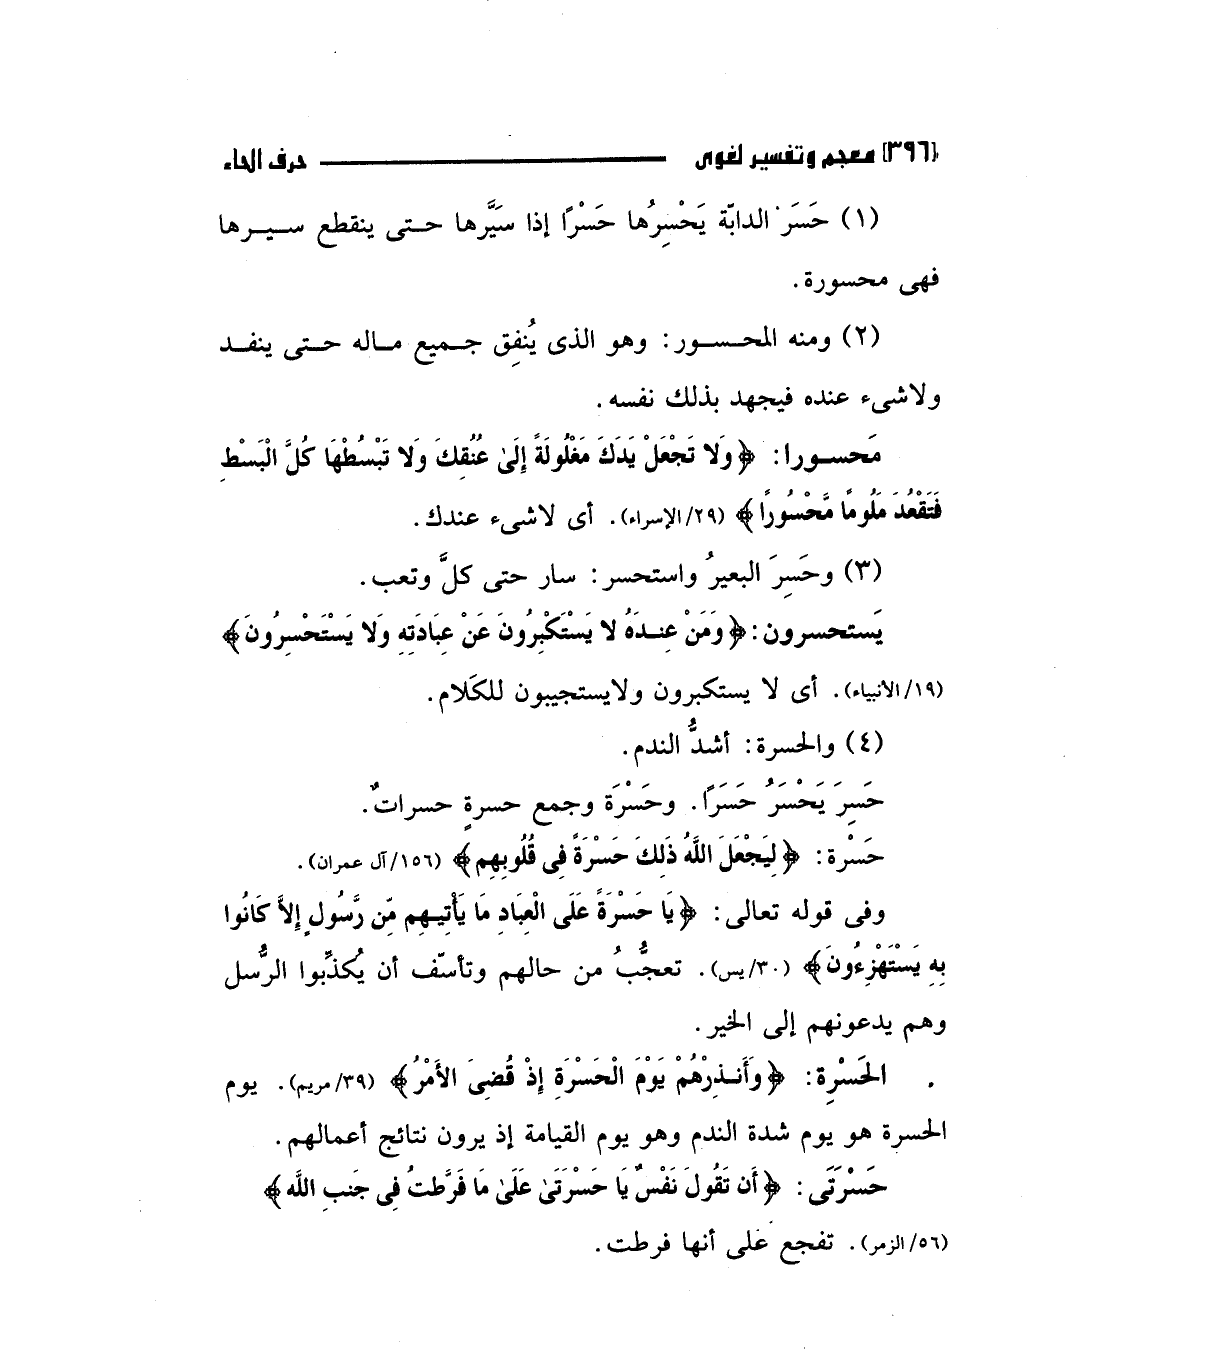 {٣٩٦} معجم وتفسير لغوى حرف الحاء
(١) حَسَرَ الدابّة يَحْسِرُها حَسْرًا إذا سَيَّرها حتى ينقطع سيرها
فهى محسورة.
(٢) ومنه المحسور: وهو الذى يُنفِق جميع ماله حتى ينفد
ولاشىء عنده فيجهد بذلك نفسه.
مَحسورا: ﴿وَلا تَجْعَلْ يَدَكَ مَغْلُولَةً إِلَىٰ عُنُقِكَ وَلا تَبْسُطْهَا كُلَّ الْبَسْطِ
فَتَقْعُدَ مَلُومًا مَّحْسُورًا﴾ (٢٩/الإسراء). أى لاشىء عندك.
(٣) وحَسِرَ البعيرُ واستحسر: سار حتى كلَّ وتعب.
يَستحسرون: ﴿وَمَنْ عِندَهُ لا يَسْتَكْبِرُونَ عَنْ عِبَادَتِهِ وَلا يَسْتَحْسِرُونَ﴾
(١٩/الانبياء). أى لا يستكبرون ولايستجيبون للكَلام.
(٤) والحسرة: أشدُّ الندم.
حَسِرَ يَحْسَرُ حَسَرًا. وحَسْرَة وجمع حسرةٍ حسراتٌ.
حَسْرة: ﴿لِيَجْعَلَ اللَّهُ ذَلِكَ حَسْرَةً فِى قُلُوبِهِم﴾ (١٥٦/آل عمران).
وفى قوله تعالى: ﴿يَا حَسْرَةً عَلَى الْعِبَادِ مَا يَأْتِيهِم مِّن رَّسُولٍ إِلاَّ كَانُوا
بِهِ يَسْتَهْزِءُونَ﴾ (٣٠/يس). تعجُّبُ من حالهم وتأسّف أن يُكذِّبوا الرُّسل
وهم يدعونهم إلى الخير.
الحَسْرِة: ﴿وَأَنذِرْهُمْ يَوْمَ الْحَسْرَةِ إِذْ قُضِىَ الأَمْرُ﴾ (٣٩/مريم). يوم
الحسرة هو يوم شدة الندم وهو يوم القيامة إذ يرون نتائج أعمالهم.
حَسْرَتَى: ﴿أَن تَقُولَ نَفْسٌ يَا حَسْرَتَىٰ عَلَىٰ مَا فَرَّطتُ فِى جَنبِ اللَّه﴾
(٥٦/الزمر). تفجع على أنها فرطت.